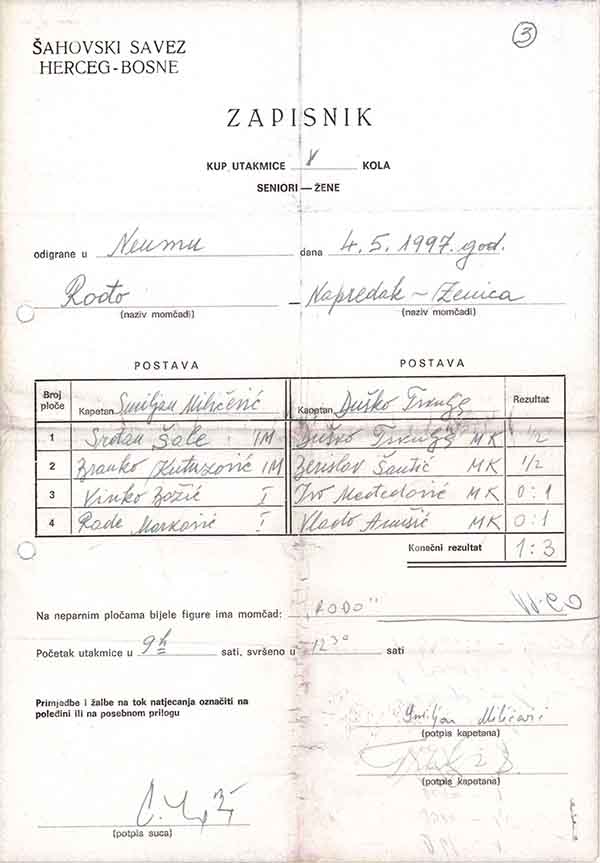 3
ŠAHOVSKI SAVEZ
HERCEG-BOSNE
ZAPISNIK
KUP UTAKMICE V KOLA
SENIORI — ŽENE
odigrane u Neumu dana 4.5.1997. god.
Rođo — Napredak - Zenica
(naziv momčadi) (naziv momčadi)
POSTAVA POSTAVA
Broj ploče Kapetan Smiljan Milićević Kapetan Duško Rezultat
1 Srđan Šale IM Duško MK 1/2
2 Branko Kutuzović IM Berislav Šantić MK 1/2
3 Vinko Božić I Ivo Međedović MK 0:1
4 Rade Marković I Vlado MK 0:1
Konečni rezultat 1:3
Na neparnim pločama bijele figure ima momčad: „RODO"
Početak utakmice u 9 h sati, svršeno u 12 30 sati
Primjedbe i žalbe na tok natjecanja označiti na
poleđini ili na posebnom prilogu
Smiljan Milićević
(potpis kapetana)
(potpis kapetana)
(potpis suca)